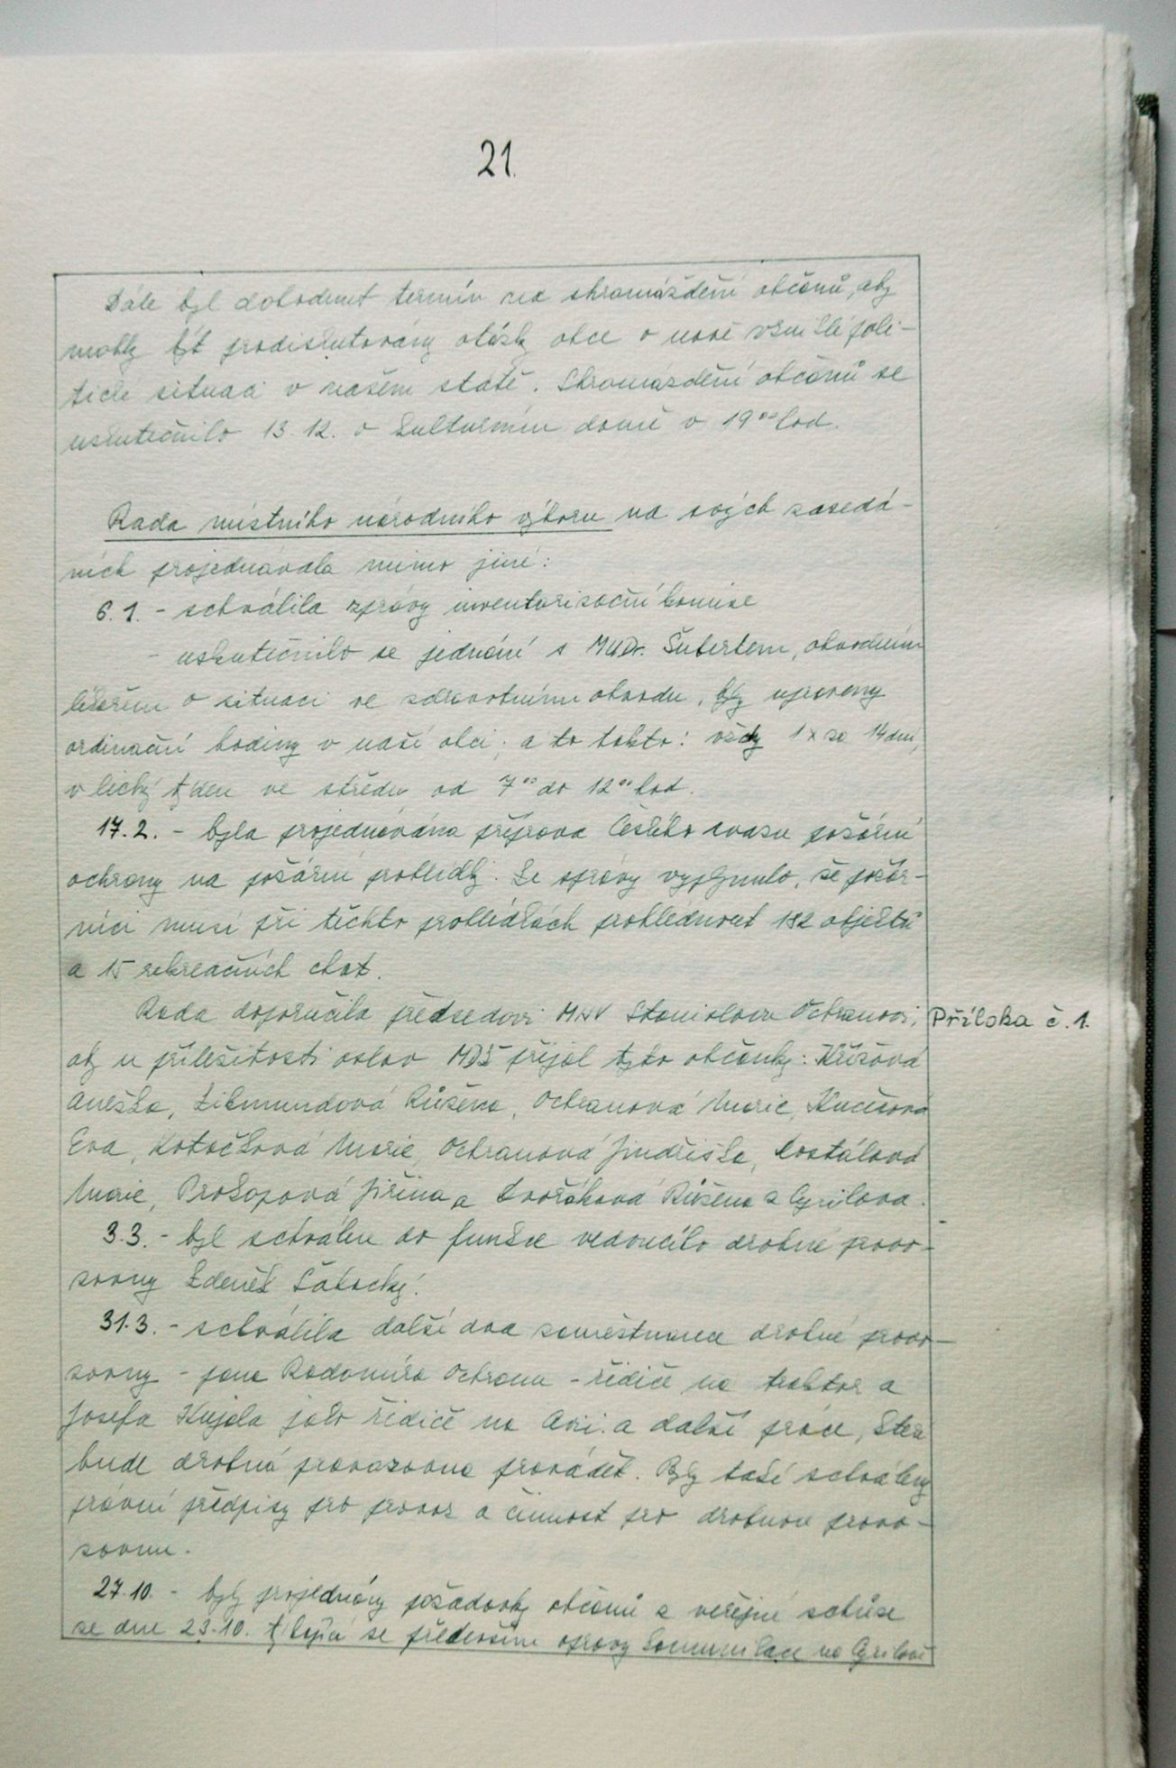 21.
Dále byl dohodnut termín na shromáždění občanů, aby
mohly být prodiskutovány otázky obce o nově vzniklé poli-
tické situaci v našem státě. Shromáždění občanů se
uskutečnilo 13. 12. v kulturním domě v 19⁰⁰ hod.
Rada místního národního výboru na svých zasedá-
ních projednávala mimo jiné:
6.1. - schválila zprávy inventarizační komise
- uskutečnilo se jednání s MUDr. Šubertem, obvodním
lékařem o situaci ve zdravotním obvodu, byly upraveny
ordinační hodiny v naší obci, a to takto: vždy 1x za 14 dní,
v lichý týden ve středu od 7⁰⁰ do 12⁰⁰ hod.
17.2. - byla projednávána příprava Českého svazu požární
ochrany na požární prohlídky. Ze zprávy vyplynulo, že požár-
níci musí při těchto prohlídkách prohlédnout 182 objektů
a 15 rekreačních chat.
Rada doporučila předsedovi MNV Stanislavu Ochranovi,
Příloha č. 1.
aby u příležitosti oslav MDŽ přijal tyto občanky: Křížová
Anežka, Zikmundová Růžena, Ochranová Marie, Kučerová
Eva, Kotočková Marie, Ochranová Jindřiška, Dostálová
Marie, Prokopová Jiřina a Dvořáková Růžena z Cyrilova.
3.3. - byl schválen do funkce vedoucího drobné provo-
zovny Zdeněk
31.3. - schválila další dva zaměstnance drobné provo-
zovny - pana Radomíra Ochranu - řidiče na traktor a
Josefa Kujala jako řidiče na Avii a další práce, které
bude drobná provozovna provádět. Byly také schváleny
právní předpisy pro provoz a činnost pro drobnou provo-
zovnu.
27.10. - byly projednány požadavky občanů z veřejné schůze
ze dne 23.10. týkající se především opravy komunikace na Cyrilově